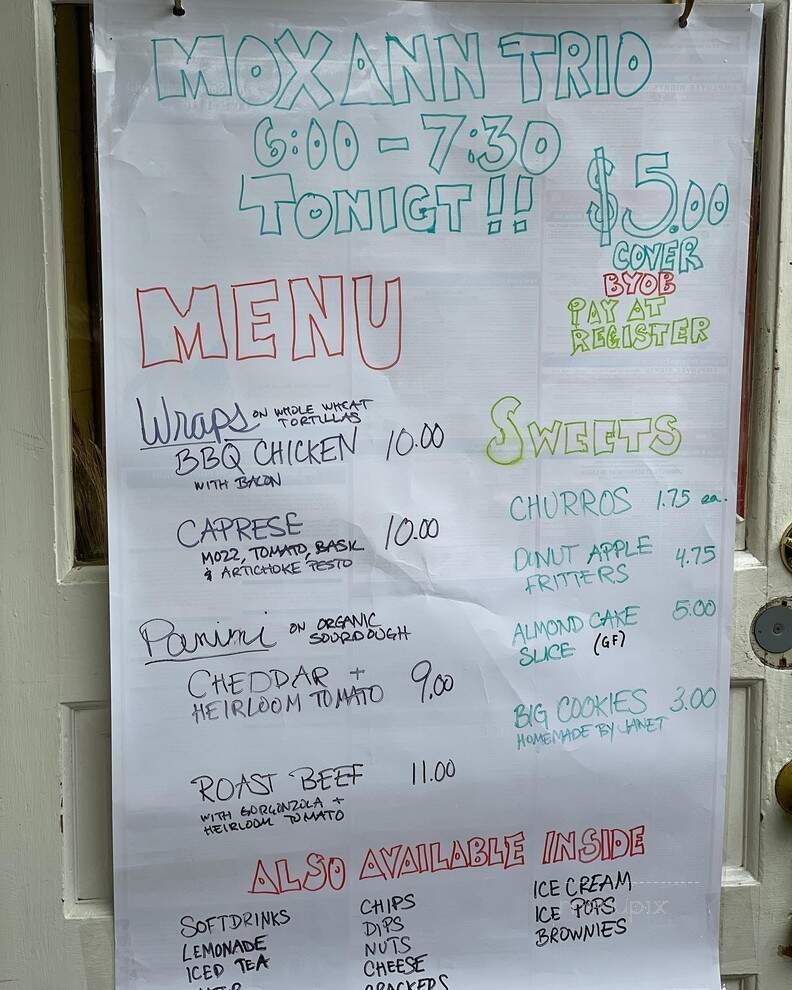 MOXANN TRIO
6:00 - 7:30
TONIGT !!
$5.00
COVER
BYOB
PAY AT
REGISTER
MENU
Wraps ON WHOLE WHEAT
TORTILLAS
BBQ CHICKEN 10.00
WITH BACON
CAPRESE 10.00
MOZZ, TOMATO, BASIL
& ARTICHOKE PESTO
Panini ON ORGANIC
SOURDOUGH
CHEDDAR + 9.00
HEIRLOOM TOMATO
ROAST BEEF 11.00
WITH GORGONZOLA +
HEIRLOOM TOMATO
SWEETS
CHURROS 1.75 ea.
DONUT APPLE 4.75
FRITTERS
ALMOND CAKE 5.00
SLICE (GF)
BIG COOKIES 3.00
HOMEMADE BY JANET
ALSO AVAILABLE INSIDE
SOFTDRINKS
LEMONADE
ICED TEA
CHIPS
DIPS
NUTS
CHEESE
CRACKERS
ICE CREAM
ICE POPS
BROWNIES